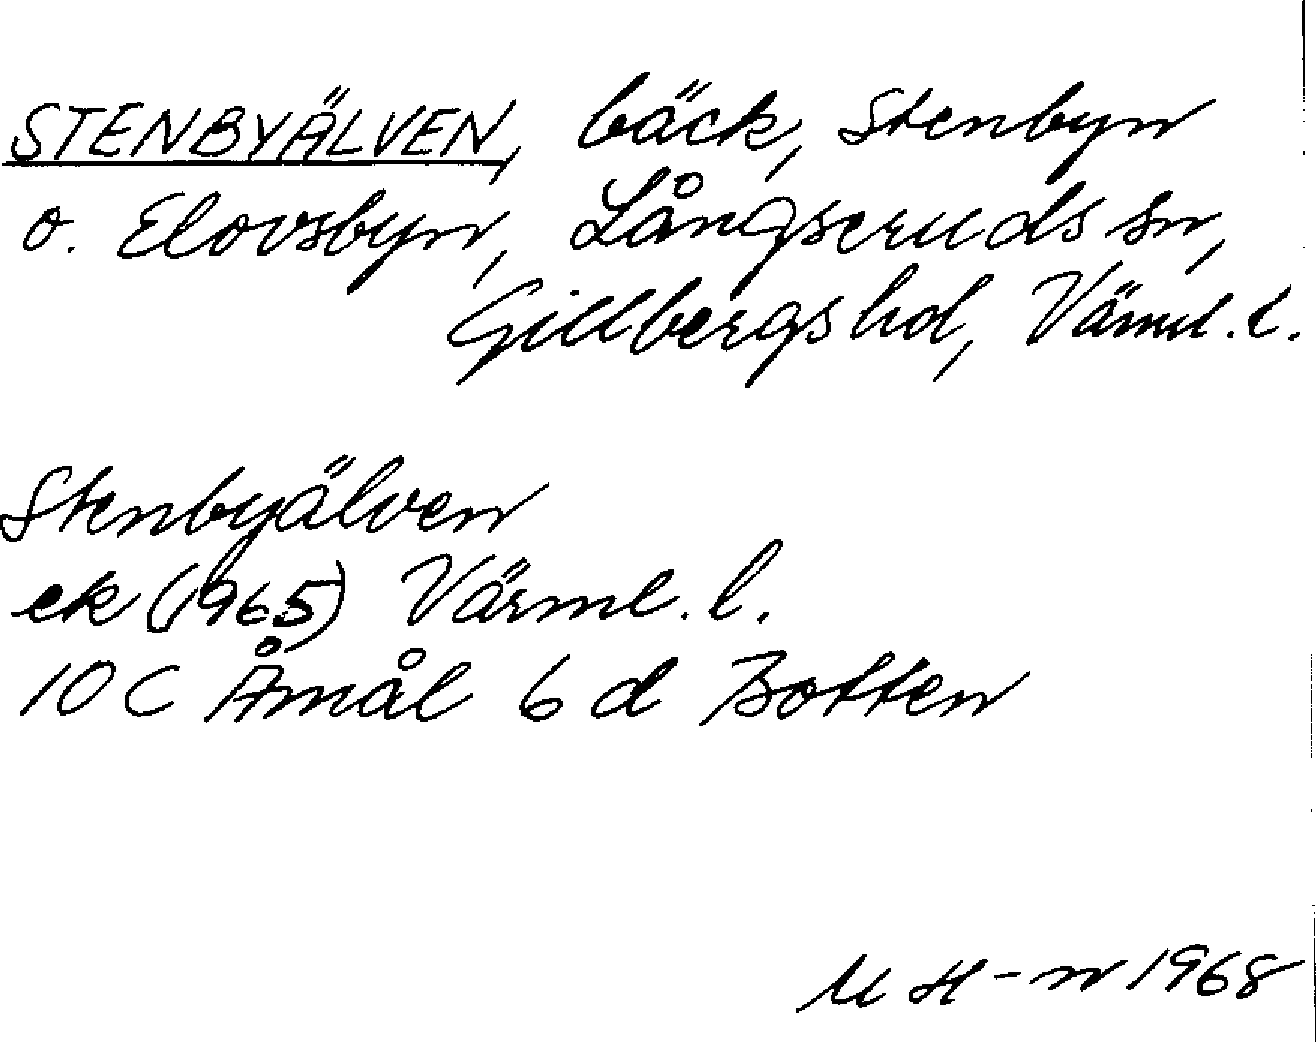 STENBYÄLVEN, bäck, Stenbyn
o. Elovsbyn, Långseruds sn,
Gillbergs hd, Värml. l.
Stenbyälven
ek (1965) Värml. l.
10 C Åmål 6 d Botten
M H-n 1968